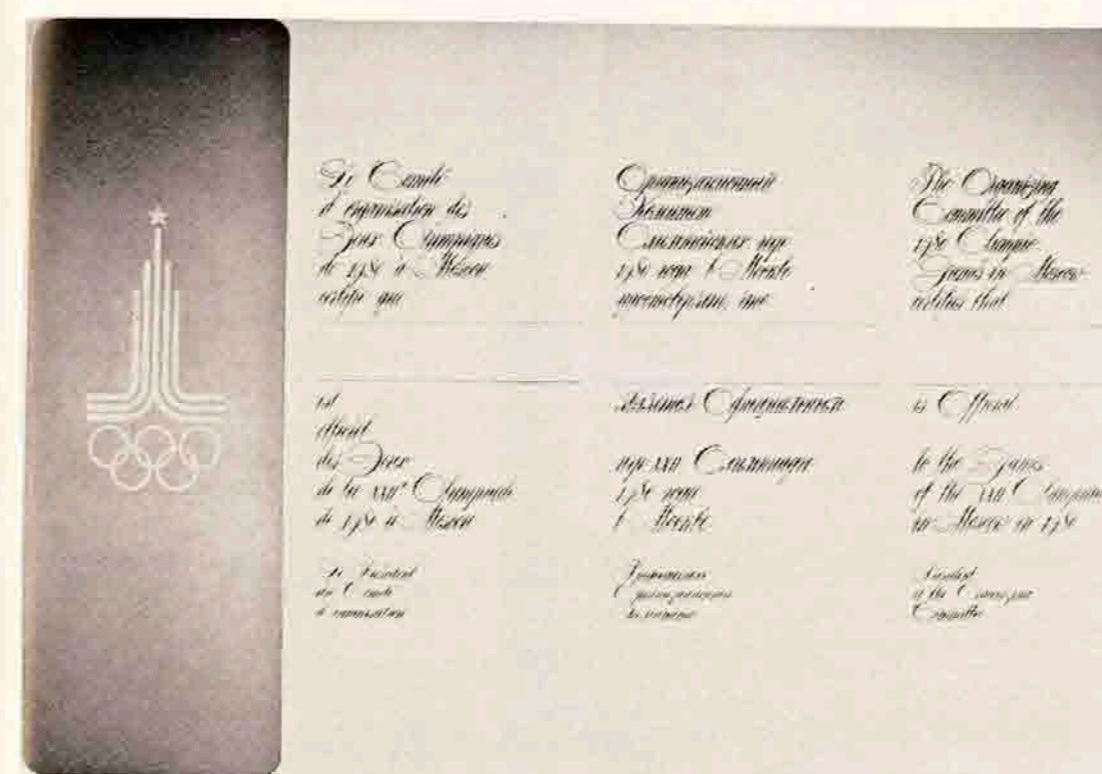 Le Comité
d'organisation des
Jeux Olympiques
de 1980 à Moscou
certifie que
est
officiel
des Jeux
de la XXIIe Olympiade
de 1980 à Moscou
Le Président
du Comité
d'organisation
Организационный
Комитет
Олимпийских игр
1980 года в Москве
удостоверяет, что
является Официальным
игр XXII Олимпиады
1980 года
в Москве
Организационного
комитета
The Organizing
Committee of the
1980 Olympic
Games in Moscow
certifies that
is Official
to the Games
of the XXII Olympiad
in Moscow in 1980
President
of the Organizing
Committee